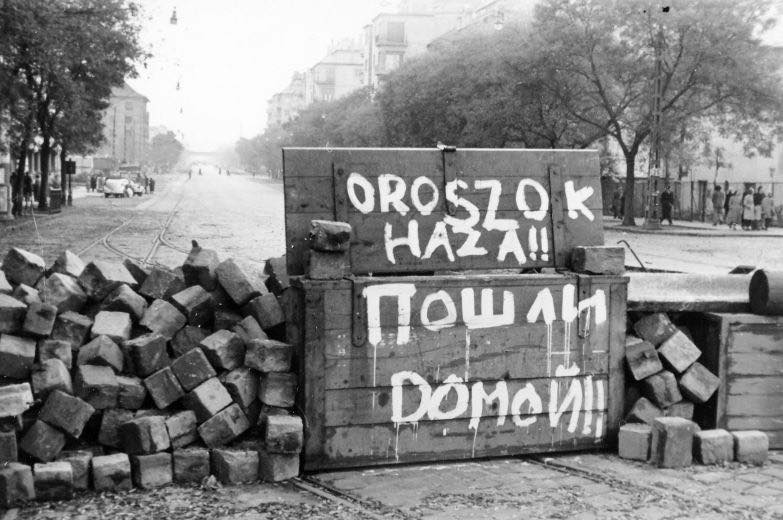 OROSZOK
HAZA!!
Пошли
Домой!!